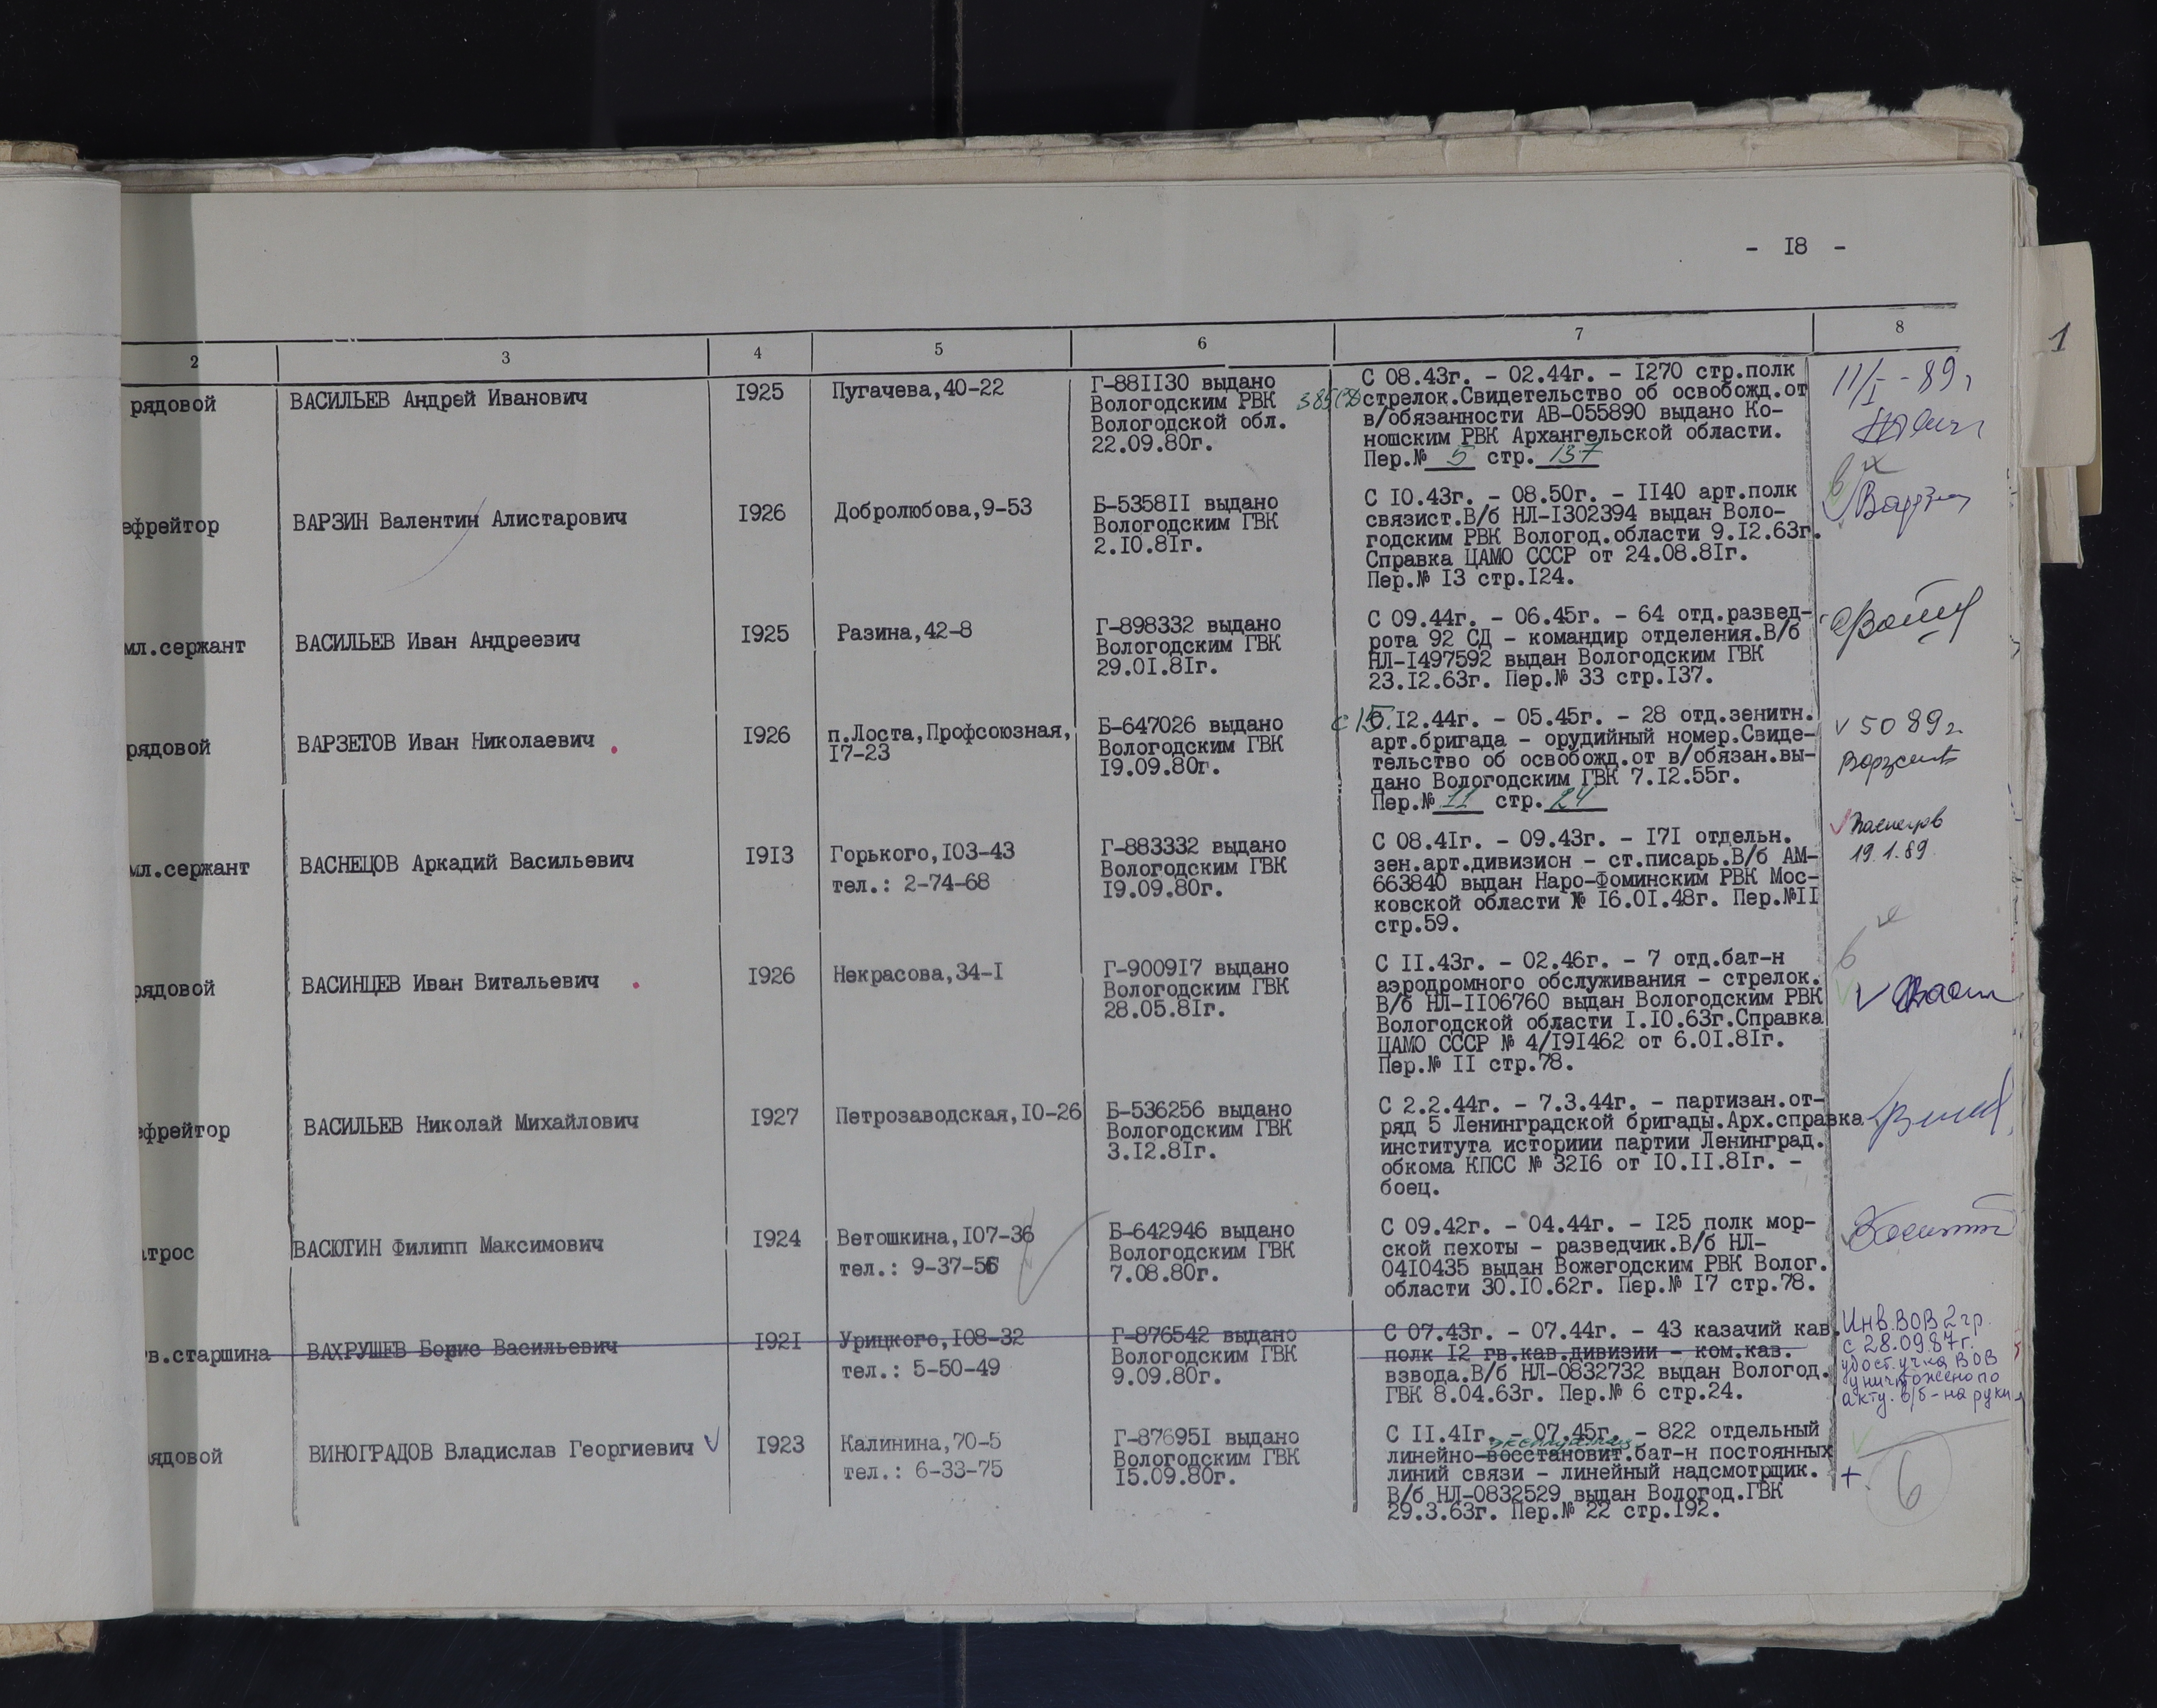 - I8 -
1
2 3 4 5 6 7 8
рядовой
ВАСИЛЬЕВ Андрей Иванович
I925
Пугачева,40-22
Г-88II30 выдано
Вологодским РВК
Вологодской обл.
22.09.80г.
С 08.43г. - 02.44г. - I270 стр.полк
стрелок.Свидетельство об освобожд.от
в/обязанности АВ-055890 выдано Ко-
ношским РВК Архангельской области.
Пер.№ 5 стр. 137
11/I - 89г
ефрейтор
ВАРЗИН Валентин Алистарович
I926
Добролюбова,9-53
Б-5358II выдано
Вологодским ГВК
2.I0.8Iг.
С I0.43г. - 08.50г. - II40 арт.полк
связист.В/б НЛ-I302394 выдан Воло-
годским РВК Вологод.области 9.I2.63г.
Справка ЦАМО СССР от 24.08.8Iг.
Пер.№ I3 стр.I24.
мл.сержант
ВАСИЛЬЕВ Иван Андреевич
I925
Разина,42-8
Г-898332 выдано
Вологодским ГВК
29.0I.8Iг.
С 09.44г. - 06.45г. - 64 отд.развед-
рота 92 СД - командир отделения.В/б
НЛ-I497592 выдан Вологодским ГВК
23.I2.63г. Пер.№ 33 стр.I37.
рядовой
ВАРЗЕТОВ Иван Николаевич
I926
п.Лоста,Профсоюзная,
I7-23
Б-647026 выдано
Вологодским ГВК
I9.09.80г.
с 15.I2.44г. - 05.45г. - 28 отд.зенитн.
арт.бригада - орудийный номер.Свиде-
тельство об освобожд.от в/обязан.вы-
дано Вологодским ГВК 7.I2.55г.
Пер.№ 11 стр. 24
мл.сержант
ВАСНЕЦОВ Аркадий Васильевич
I9I3
Горького,I03-43
тел.: 2-74-68
Г-883332 выдано
Вологодским ГВК
I9.09.80г.
С 08.4Iг. - 09.43г. - I7I отдельн.
зен.арт.дивизион - ст.писарь.В/б АМ-
663840 выдан Наро-Фоминским РВК Мос-
ковской области № I6.0I.48г. Пер.№II
стр.59.
19.1.89
рядовой
ВАСИНЦЕВ Иван Витальевич
I926
Некрасова,34-I
Г-9009I7 выдано
Вологодским ГВК
28.05.8Iг.
С II.43г. - 02.46г. - 7 отд.бат-н
аэродромного обслуживания - стрелок.
В/б НЛ-II06760 выдан Вологодским РВК
Вологодской области I.I0.63г.Справка
ЦАМО СССР № 4/I9I462 от 6.0I.8Iг.
Пер.№ II стр.78.
ефрейтор
ВАСИЛЬЕВ Николай Михайлович
I927
Петрозаводская,I0-26
Б-536256 выдано
Вологодским ГВК
3.I2.8Iг.
С 2.2.44г. - 7.3.44г. - партизан.от-
ряд 5 Ленинградской бригады.Арх.справка
института историии партии Ленинград.
обкома КПСС № 32I6 от I0.II.8Iг. -
боец.
атрос
ВАСЮТИН Филипп Максимович
I924
Ветошкина,I07-36
тел.: 9-37-56
Б-642946 выдано
Вологодским ГВК
7.08.80г.
С 09.42г. - 04.44г. - I25 полк мор-
ской пехоты - разведчик.В/б НЛ-
04I0435 выдан Вожегодским РВК Волог.
области 30.I0.62г. Пер.№ I7 стр.78.
гв.старшина
ВАХРУШЕВ Борис Васильевич
I92I
Урицкого,I08-32
тел.: 5-50-49
Г-876542 выдано
Вологодским ГВК
9.09.80г.
С 07.43г. - 07.44г. - 43 казачий кав.
полк I2 гв.кав.дивизии - ком.кав.
взвода.В/б НЛ-0832732 выдан Вологод.
ГВК 8.04.63г. Пер.№ 6 стр.24.
Инв.ВОВ 2 гр.
с 28.09.87г.
удост.уч-ка ВОВ
уничтожено по
акту. в/б - на руки
рядовой
ВИНОГРАДОВ Владислав Георгиевич
I923
Калинина,70-5
тел.: 6-33-75
Г-87695I выдано
Вологодским ГВК
I5.09.80г.
С II.4Iг. - 07.45г. - 822 отдельный
линейно-восстановит.бат-н постоянных
линий связи - линейный надсмотрщик.
В/б НЛ-0832529 выдан Вологод.ГВК
29.3.63г. Пер.№ 22 стр.I92.
+
6